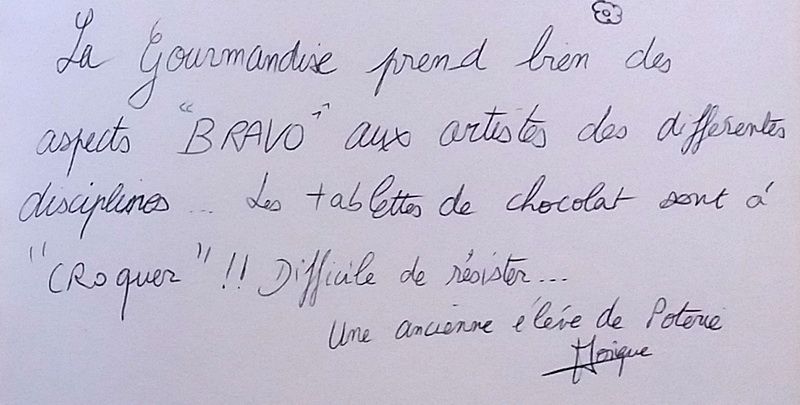 La Gourmandise prend bien des
aspects "BRAVO" aux artistes des differentes
disciplines... Les tablettes de chocolat sont à
"CROquer"!! Difficile de résister...
Une ancienne élève de Poterie